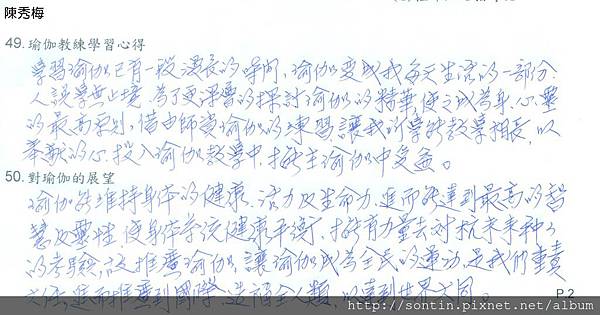 陳秀梅
49. 瑜伽教練學習心得
學習瑜伽已有一段漫長的時間，瑜伽變成我每天生活的一部分
人說學無止境，為了更深層的探討瑜伽的精華，使之成為身、心、靈
的最高原則，借由師資瑜伽的練習，讓我所學能教學相長，以
奉獻的心，投入瑜伽教學中，能在瑜伽中受益。
50. 對瑜伽的展望
瑜伽能維持身体的健康、活力及生命力，進而能達到最高的智
慧及靈性，使身体系統健康平衡，才能有力量去对抗未来种々
的考驗，故推廣瑜伽，讓瑜伽成為全民的運动，是我們重責
大任，進而推廣到國際，造福全人類，以達到世界大同。
P.2
http://sontin.pixnet.net/album